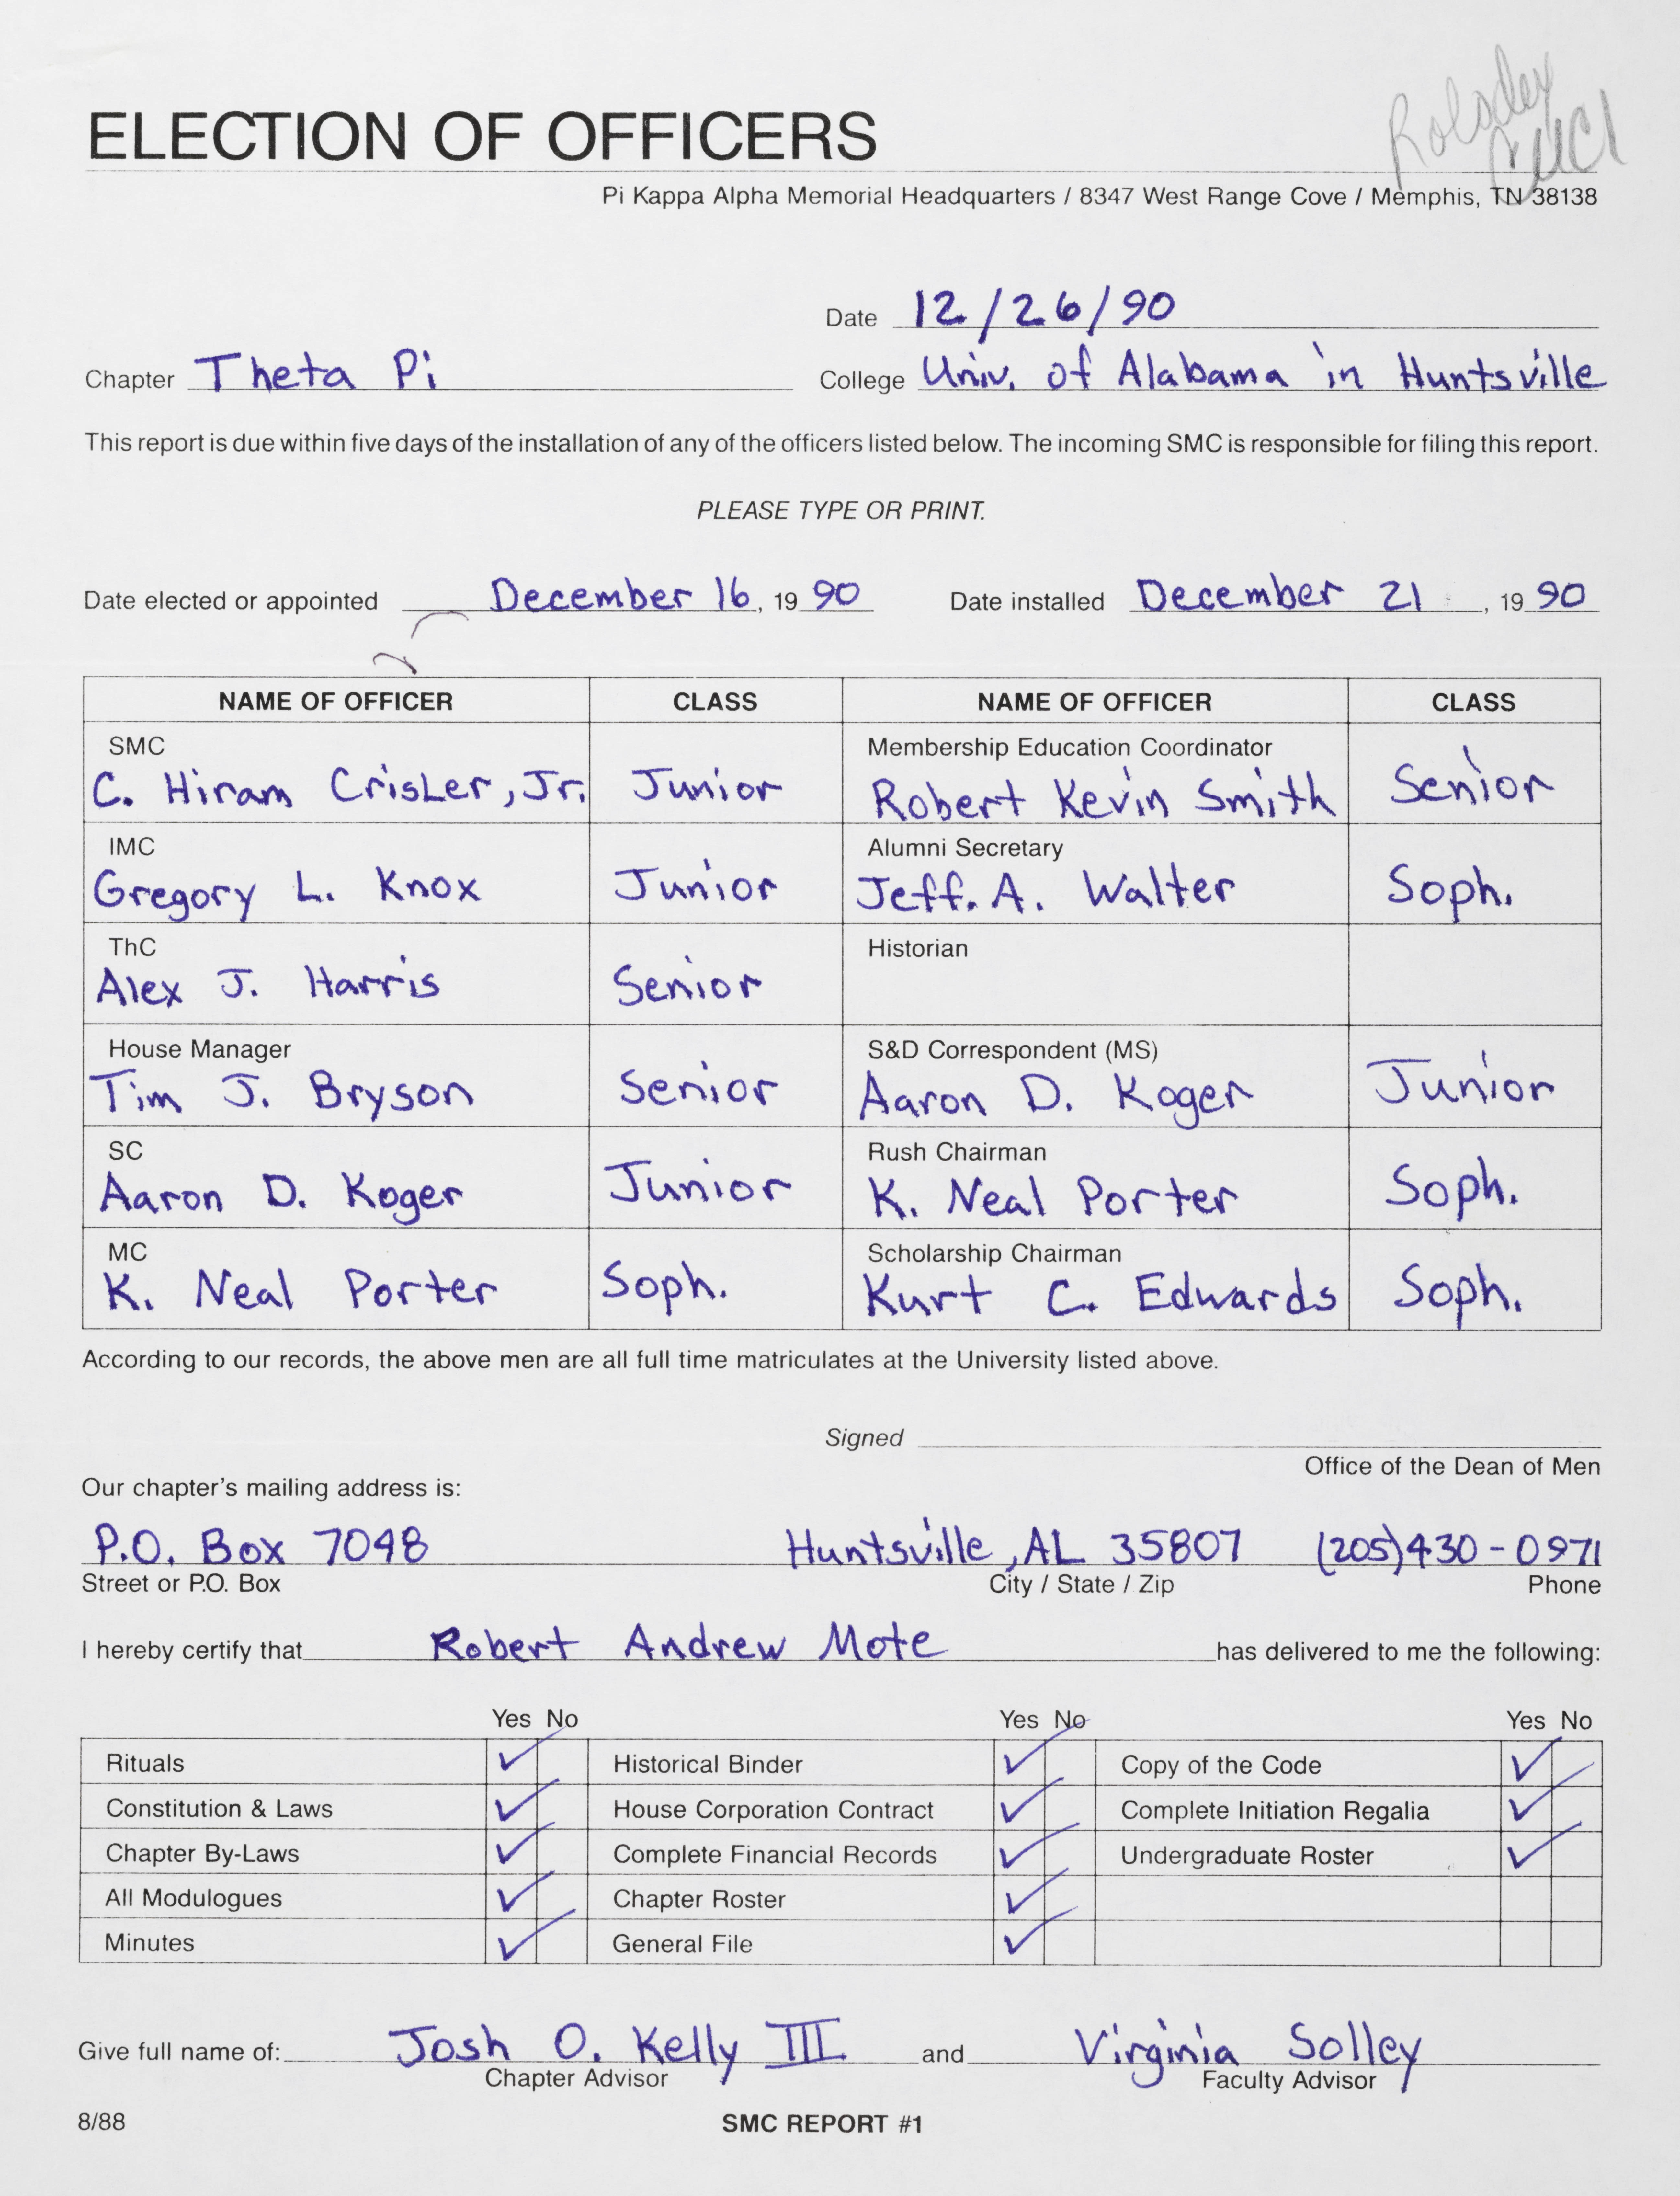 Rolodex
ELECTION OF OFFICERS
Pi Kappa Alpha Memorial Headquarters / 8347 West Range Cove / Memphis, TN 38138
Date 12/26/90
Chapter Theta Pi College Univ. of Alabama in Huntsville
This report is due within five days of the installation of any of the officers listed below. The incoming SMC is responsible for filing this report.
PLEASE TYPE OR PRINT.
Date elected or appointed December 16, 19 90 Date installed December 21, 19 90
NAME OF OFFICER CLASS NAME OF OFFICER CLASS
SMC Membership Education Coordinator
C. Hiram Crisler, Jr. Junior Robert Kevin Smith Senior
IMC Alumni Secretary
Gregory L. Knox Junior Jeff. A. Walter Soph.
ThC Historian
Alex J. Harris Senior
House Manager S&D Correspondent (MS)
Tim J. Bryson Senior Aaron D. Koger Junior
SC Rush Chairman
Aaron D. Koger Junior K. Neal Porter Soph.
MC Scholarship Chairman
K. Neal Porter Soph. Kurt C. Edwards Soph.
According to our records, the above men are all full time matriculates at the University listed above.
Signed
Office of the Dean of Men
Our chapter's mailing address is:
P.O. Box 7048 Huntsville, AL 35807 (205)430-0971
Street or P.O. Box City / State / Zip Phone
I hereby certify that Robert Andrew Mote has delivered to me the following:
Yes No Yes No Yes No
Rituals ✓ Historical Binder ✓ Copy of the Code ✓
Constitution & Laws ✓ House Corporation Contract ✓ Complete Initiation Regalia ✓
Chapter By-Laws ✓ Complete Financial Records ✓ Undergraduate Roster ✓
All Modulogues ✓ Chapter Roster ✓
Minutes ✓ General File ✓
Give full name of: Josh O. Kelly III and Virginia Solley
Chapter Advisor Faculty Advisor
8/88 SMC REPORT #1